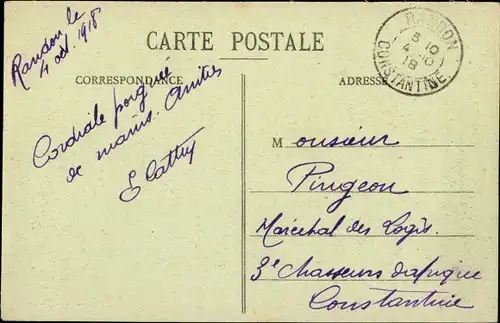 CARTE POSTALE
CORRESPONDANCE
ADRESSE
Randon le
4 oct. 1918
Cordiale poignée
de mains. Amitiés
RANDON
8 10
4 -10
18
CONSTANTINE
Monsieur
Pingeon
Maréchal des Logis
3e Chasseurs d'afrique
Constantine